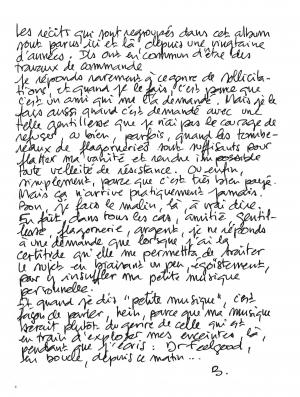 Les récits qui sont regroupés dans cet album
sont parus ici et là, depuis une vingtaine
d'années. Ils ont en commun d'être des
travaux de commande
Je réponds rarement à ce genre de sollicita-
tions, et quand je le fais, c'est parce que
c'est un ami qui me l'a demandé. Mais je le
fais aussi quand c'est demandé avec une
telle gentillesse que je n'ai pas le courage de
refuser. Ou bien, parfois, quand les tombe-
reaux de flagorneries sont suffisants pour
flatter ma vanité et rendre impossible
toute velléité de résistance. Ou enfin,
simplement, parce que c'est très bien payé.
Mais ça n'arrive pratiquement jamais.
Bon, je fais le malin, là, à vrai dire.
En fait, dans tous les cas, amitié, gentil-
lesse, flagornerie, argent, je ne réponds
à une demande que lorsque j'ai la
certitude qu'elle me permettra de traiter
le sujet en biaisant un peu, égoïstement,
pour y insuffler ma petite musique
personnelle.
Et quand je dis "petite musique", c'est
façon de parler, hein, parce que ma musique
serait plutôt du genre de celle qui est
en train d'exploser mes enceintes, là,
pendant que j'écris : Dr Feelgood,
en boucle, depuis ce matin...
B.